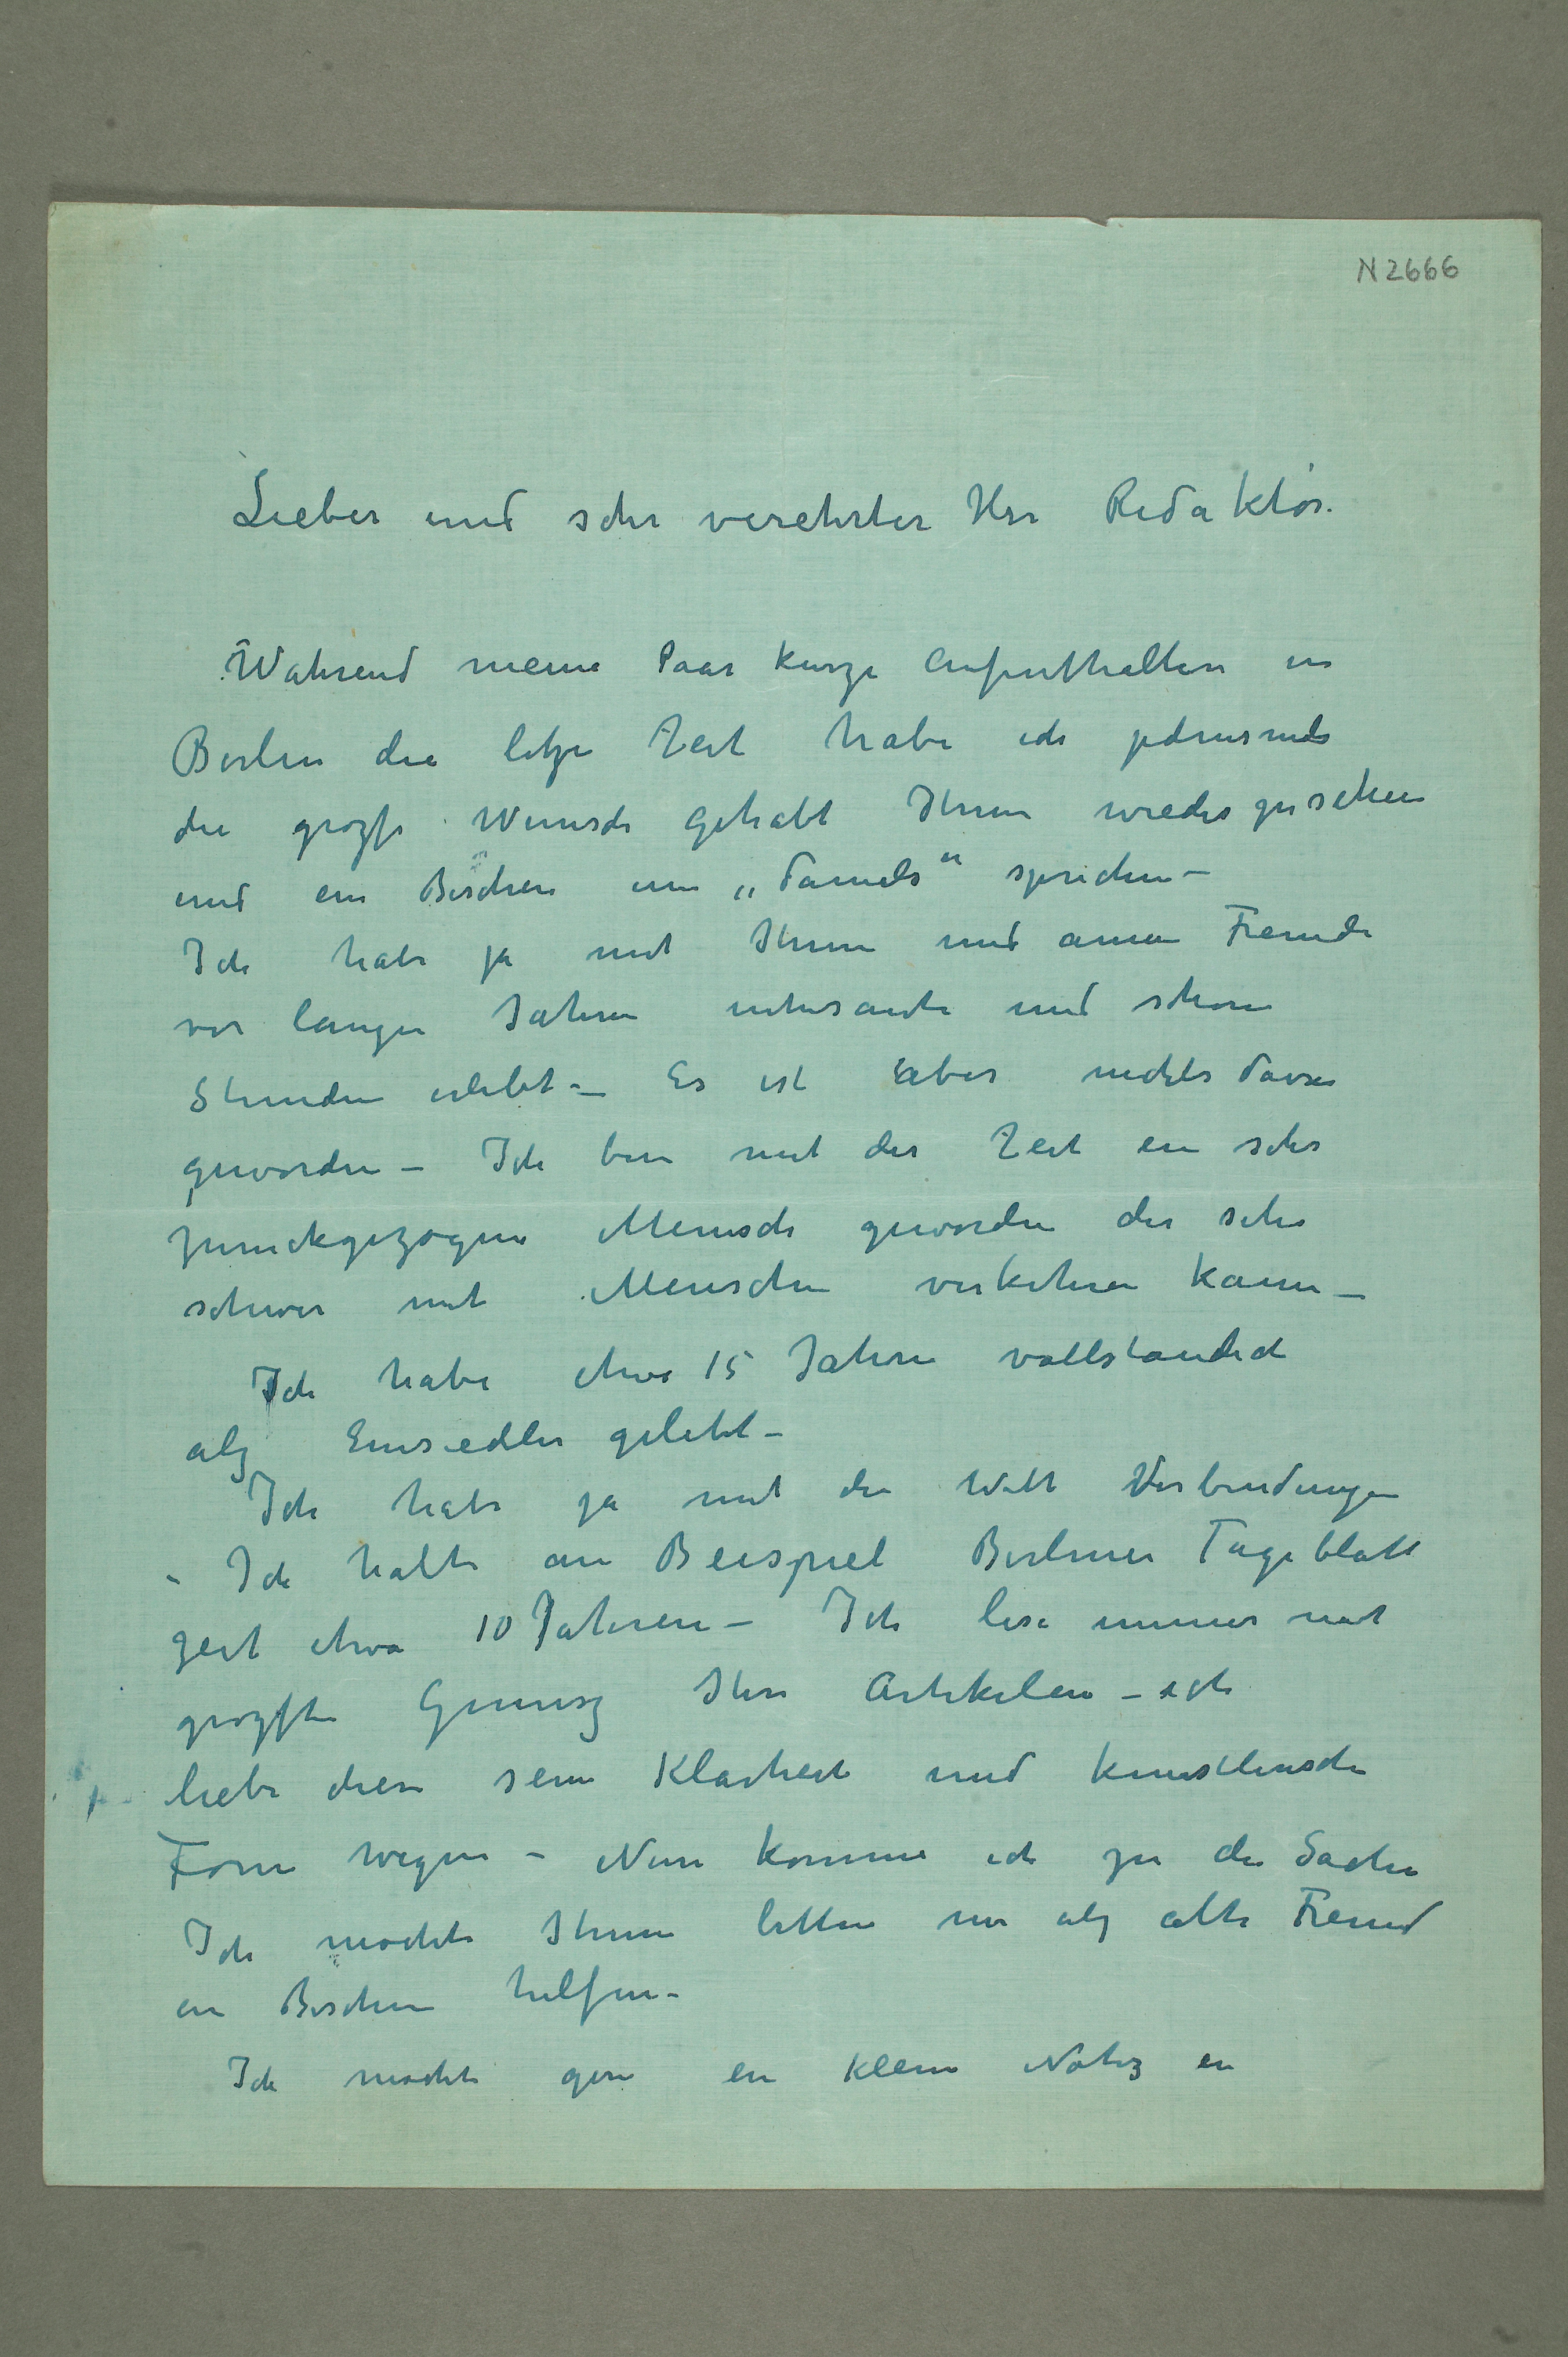 N 2666
Lieber und sehr verehrter Herr Redaktör.
Während meine Paar kurze Aufenthalten in
Berlin die letze Zeit habe ich jedensmals
die grozse Wunsch gehabt Ihnen wieder zu sehen
und ein Bischen um „damals“ sprechen –
Ich habe ja mit Ihnen und anner Freunde
vor langen Jahren interesante und schöne
Stunden erlebt – Es ist aber nichts davon
geworden – Ich bin mit der Zeit ein sehr
zurückgezogene Mensch geworden der sehr
schwer mit Menschen verkehren kann –
Ich habe etwa 15 Jahren vollständich
alz Einsiedler gelebt –
Ich habe ja mit die Welt Verbindungen
– Ich halte am Beispiel Berliner Tageblatt
zeit etwa 10 Jahren – Ich lese immer mit
grozste Genusz Ihre Artikelen – ich
liebe diese seine Klarheit und künstlerische
Form wegen – Nun komme ich zu die Sache
Ich möchte Ihnen bitten mir alz alte Freund
ein Bischen helfen –
Ich möchte gern ein kleine Notiz in